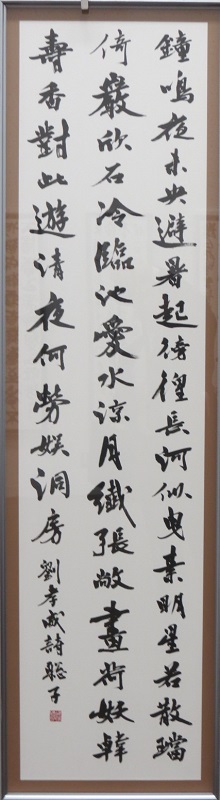 鐘鳴夜未央避暑起徬徨長河似曳素明星若散璫
倚巖欣石冷臨池愛水涼月纖張敞畫荷妖韓
壽香對此遊清夜何勞娛洞房 劉孝威詩 聡子